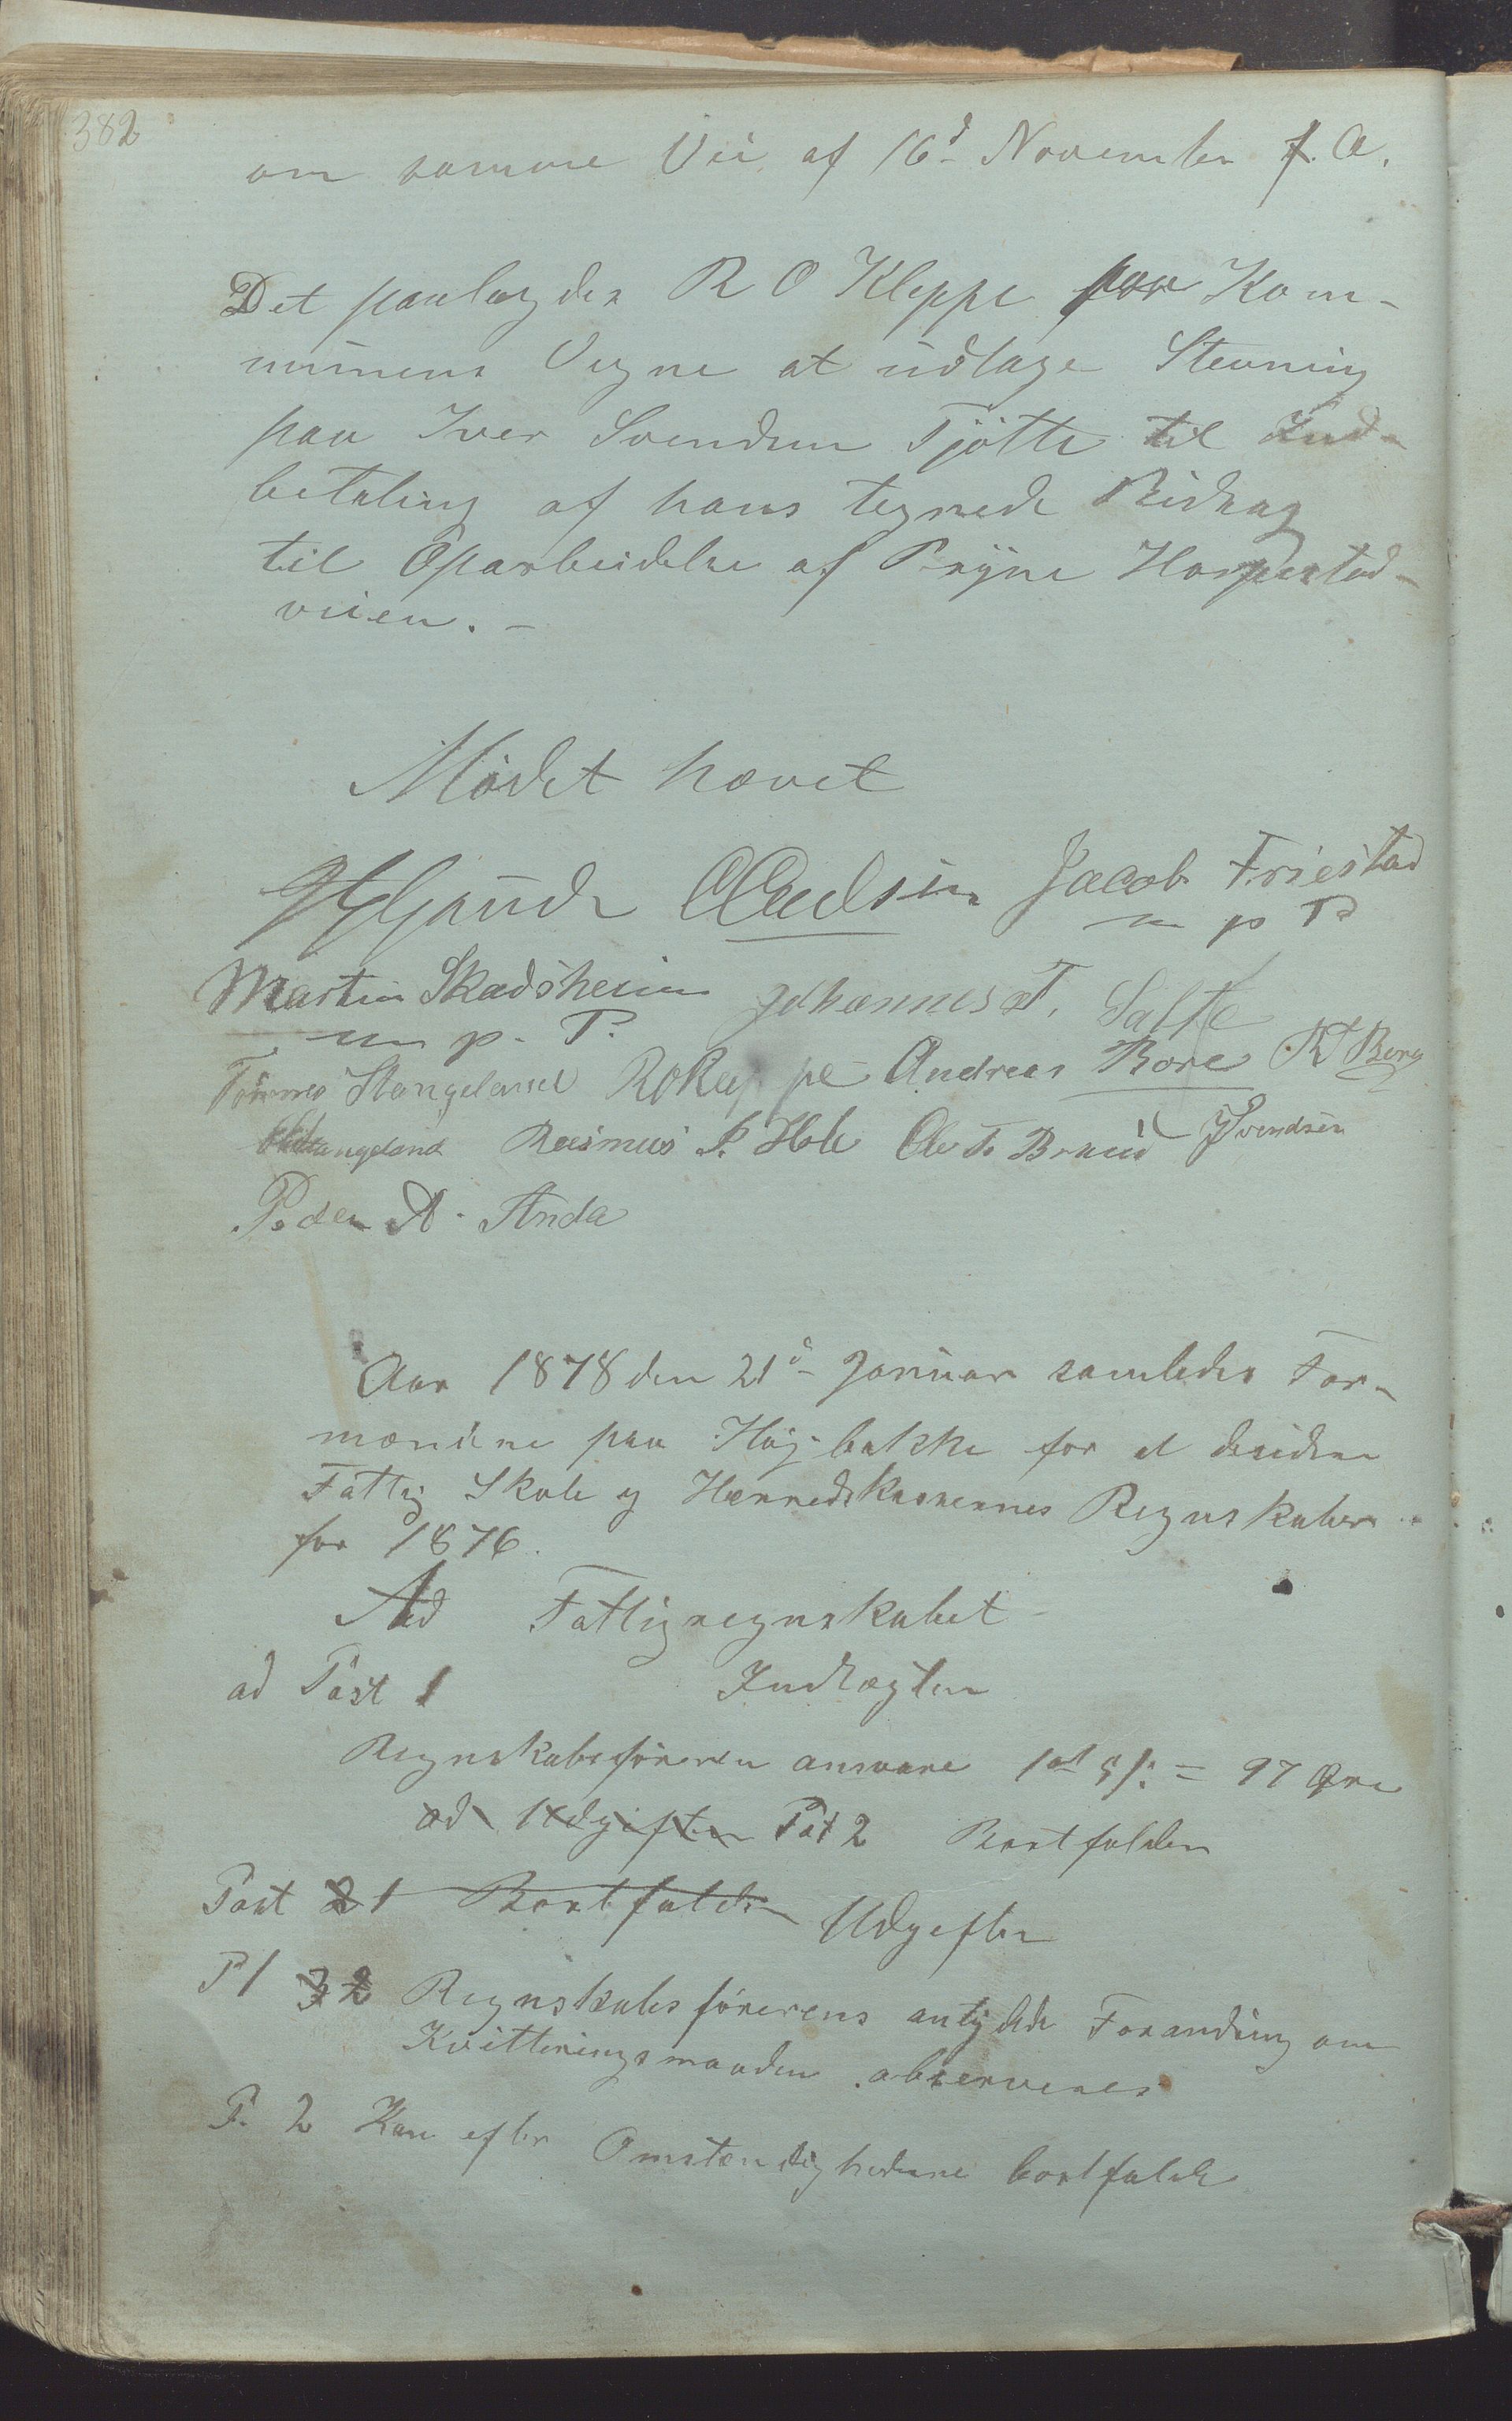 382
om samme Vei af 16d November f. A.
Det paalagdes R O Kleppe paa Kom-
munens Vegne at udtage Stevning
paa Iver Svendsen Tjötte til Ind-
betaling af hans tegnede Bidrag
til Oparbeidelse af Bryne Horpestad-
veien. -
Mödet hævet
Aadsen Jacob Friestad
m p P
Martin Skadsheim Johannes T. Salte
m p. P.
Tönnes Stangeland R O Kleppe Andreas Bore R T Berg
Stangeland Rasmus P. Hole Ole T. Braud Svendsen
Peder A. Anda
Aar 1878 den 21de Januar samledes For-
mændene paa Høgbakke for at decidere
Fattig Skole og Herredskassernes Regnskaber
for 1876.
Ad Fattigregnskabet
ad Post 1 Indtægten
Regnskabsföreren ansvare = 97 Øre
ad Udgiften Post 2 Bortfalder
Post 2 1 Bortfalder Udgifter
P 1 3 2 Regnskabsförerens antydede Forandring om
Kvitteringsmaaden observeres
P. 2 Kan efter Omstændighederne bortfalde